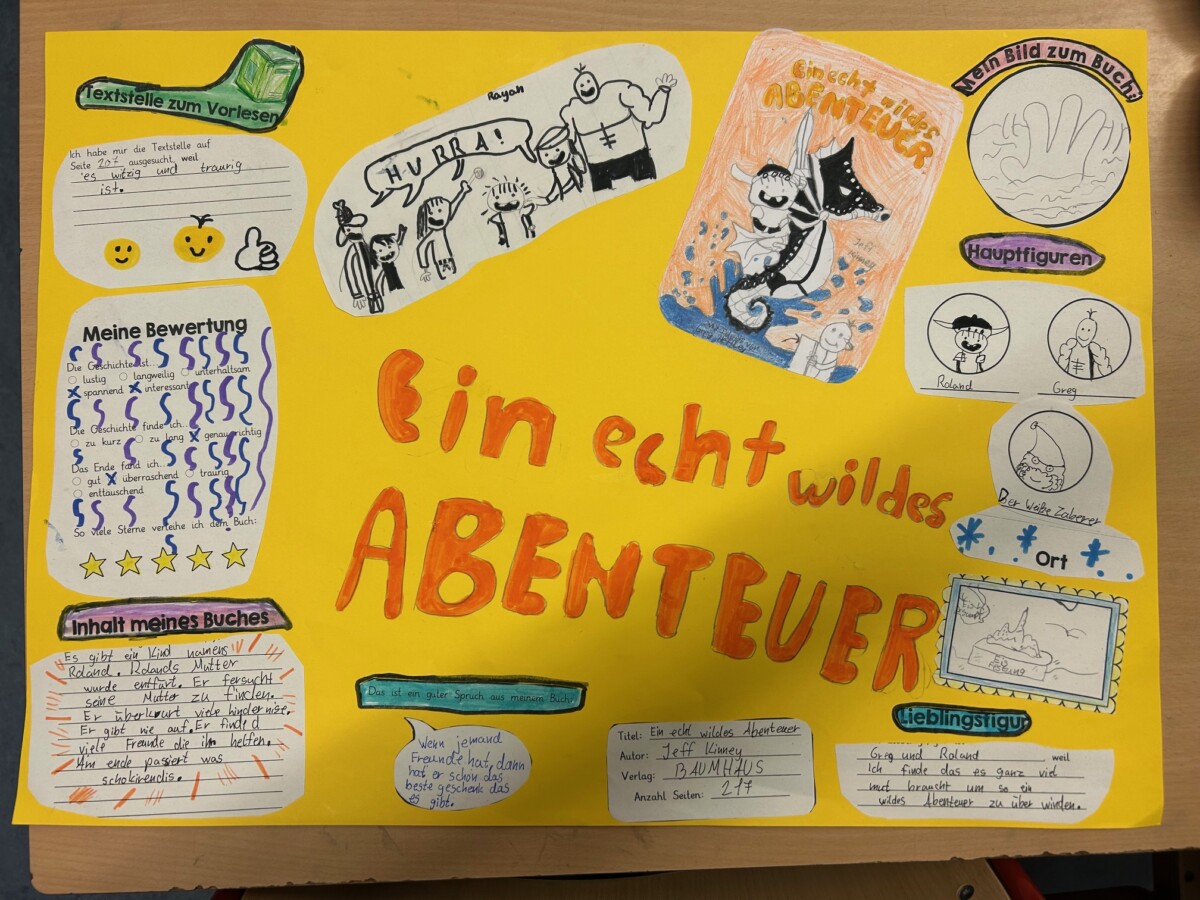 Textstelle zum Vorlesen
Ich habe mir die Textstelle auf
Seite 207 ausgesucht, weil
es witzig und traurig
ist.
Rayan
HURRA!
Ein echt wildes
ABENTEUER
Jeff
Kinney
Mein Bild zum Buch:
Hauptfiguren
Roland
Greg
Der weiße Zaberer
Ort
Eis
festung
Lieblingsfigur
Greg und Roland weil
Ich finde das es ganz viel
mut braucht um so ein
wildes Abenteuer zu über winden.
Meine Bewertung
Die Geschichte ist...
lustig langweilig unterhaltsam
spannend interessant
Die Geschichte finde ich...
zu kurz zu lang genau richtig
Das Ende fand ich...
gut überraschend traurig
enttäuschend
So viele Sterne verleihe ich dem Buch:
Inhalt meines Buches
Es gibt ein Kind namens
Roland. Rolands Mutter
wurde entfürt. Er fersucht
seine Mutter zu finden.
Er überkwurt viele hindernisse.
Er gibt nie auf. Er finded
viele Freunde die ihm helfen.
Am ende passiert was
schokirendis.
Ein echt
wildes
ABENTEUER
Das ist ein guter Spruch aus meinem Buch:
Wenn jemand
Freunde hat, dann
hat er schon das
beste geschenk das
es gibt.
Titel: Ein echt wildes Abenteuer
Autor: Jeff Kinney
Verlag: BAUMHAUS
Anzahl Seiten: 217